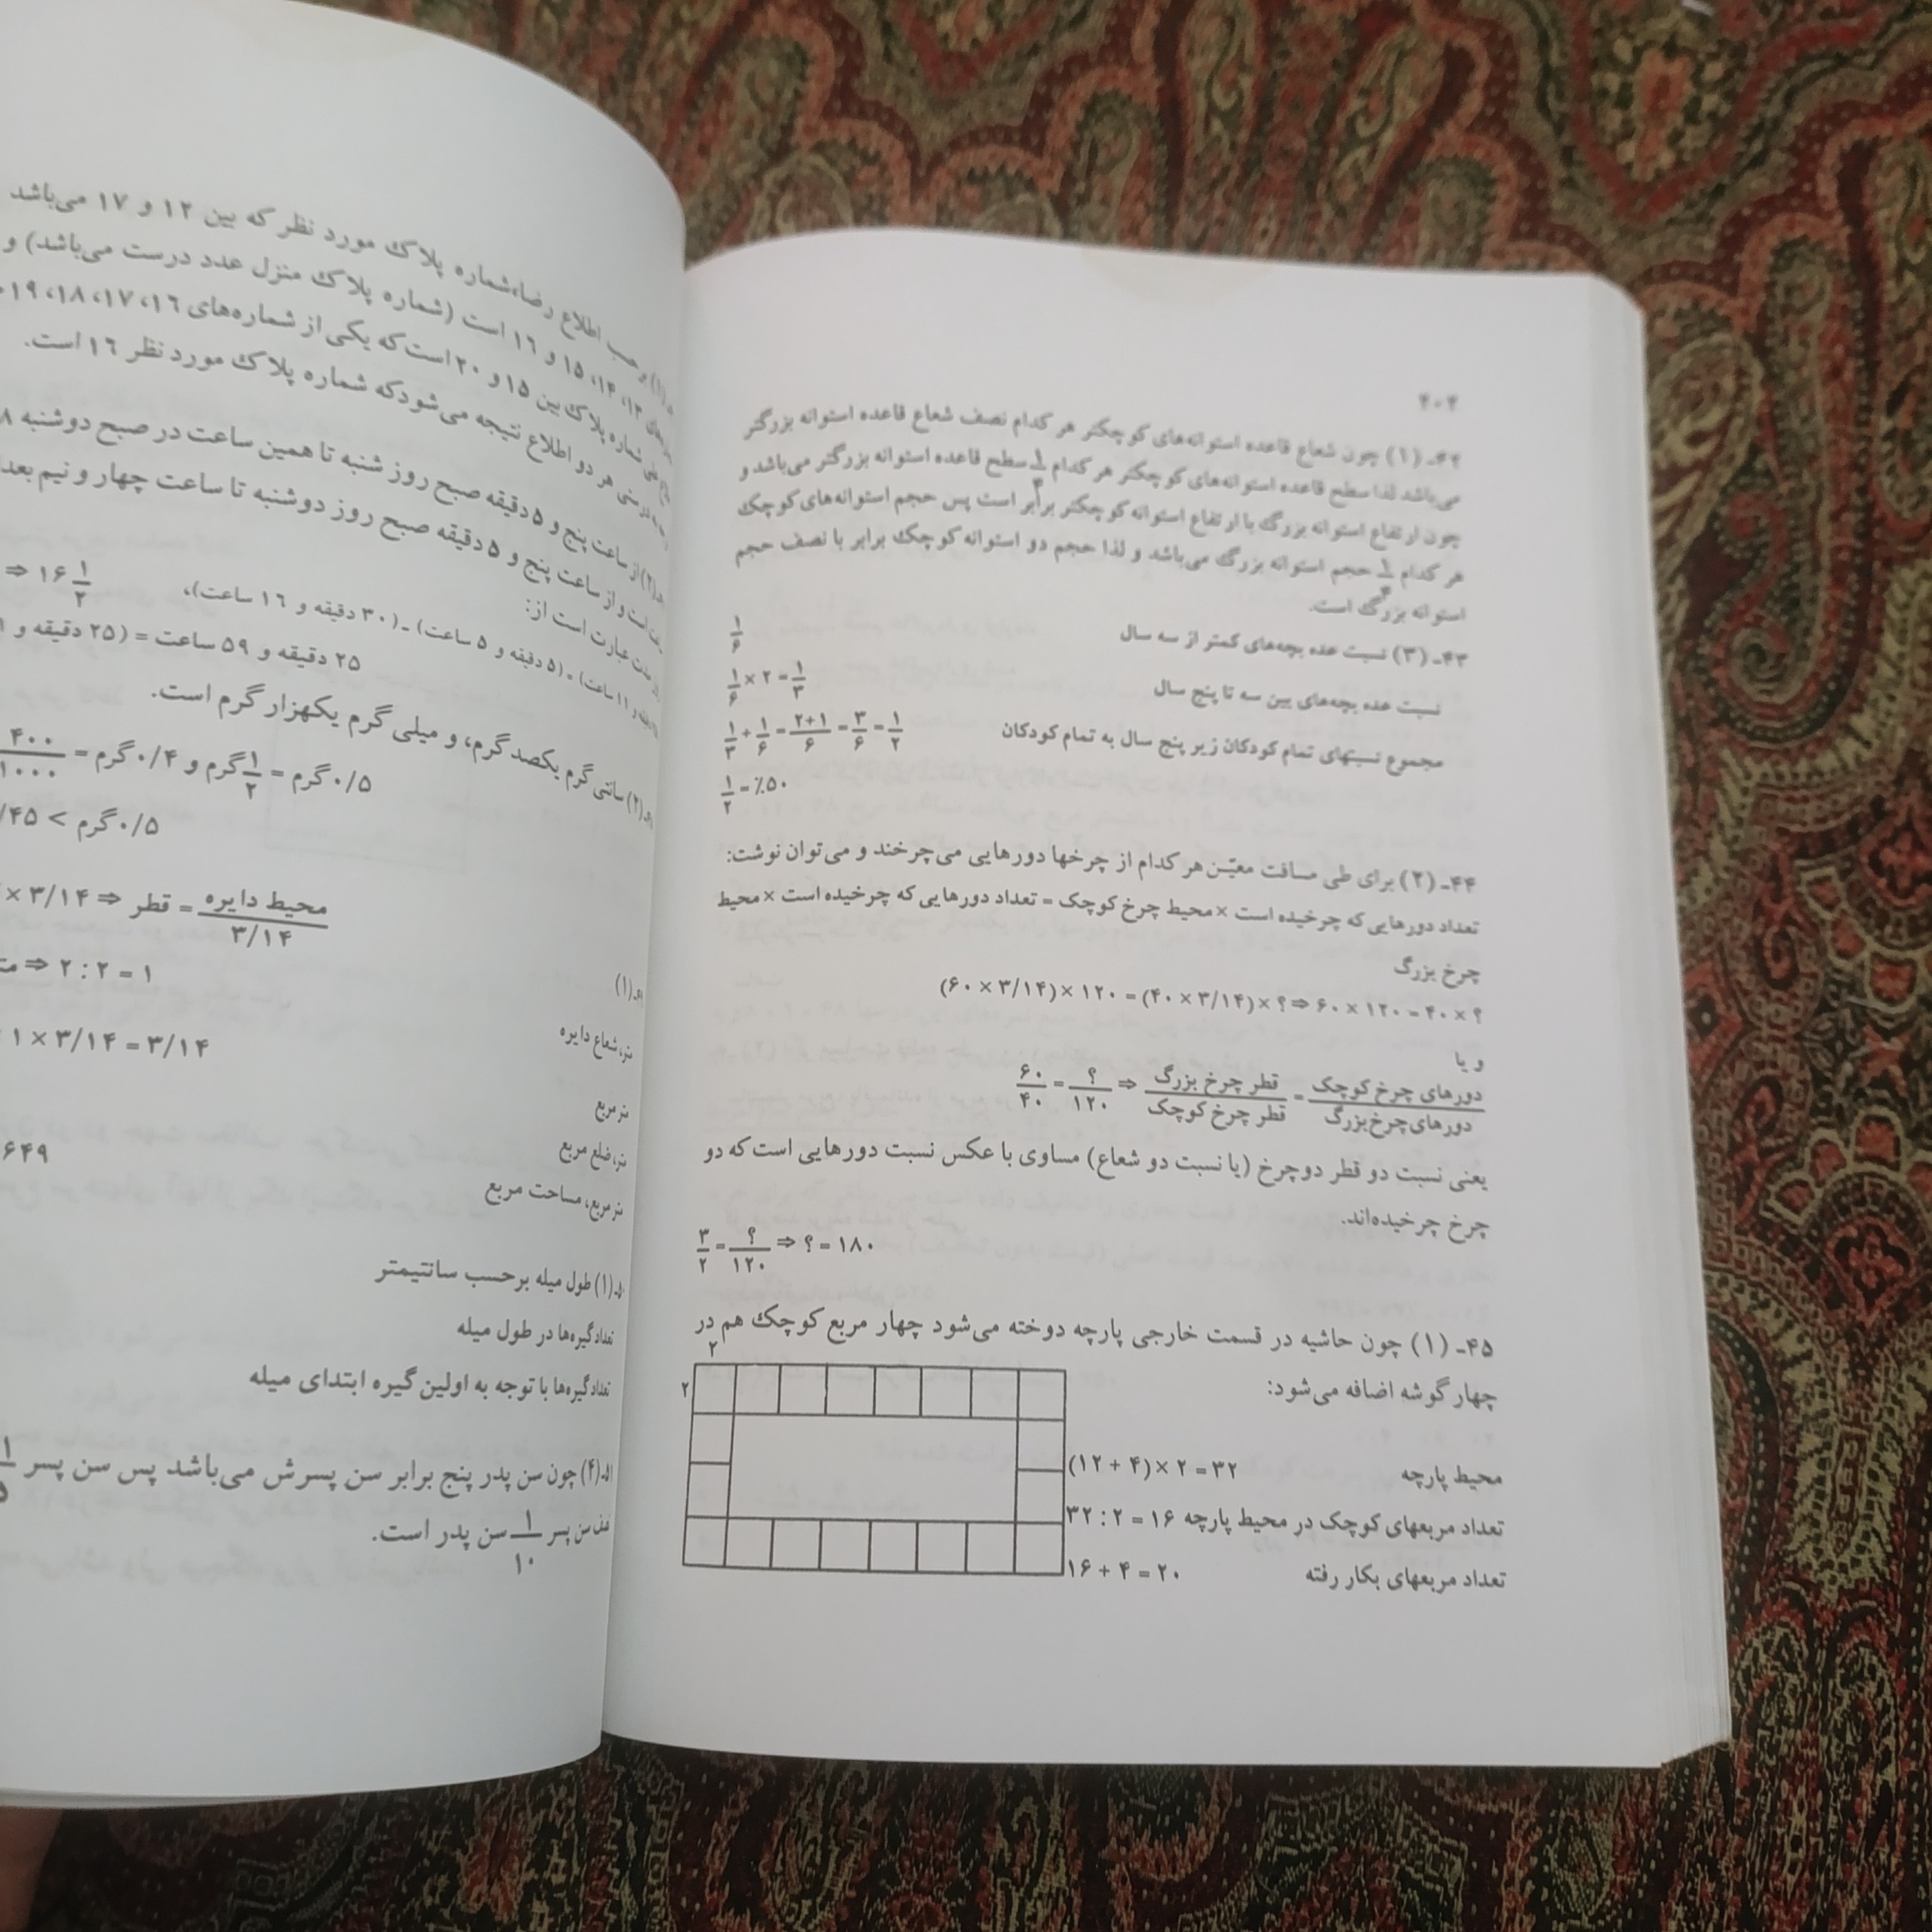 ۴۰۴
۴۲ـ (۱) چون شعاع قاعده استوانه‌های کوچکتر هر کدام نصف شعاع قاعده استوانه بزرگتر
می‌باشد لذا سطح قاعده استوانه‌های کوچکتر هر کدام ۱/۴ سطح قاعده استوانه بزرگتر می‌باشد و
چون ارتفاع استوانه بزرگ با ارتفاع استوانه کوچکتر برابر است پس حجم استوانه‌های کوچک
هر کدام ۱/۴ حجم استوانه بزرگ می‌باشد و لذا حجم دو استوانه کوچک برابر با نصف حجم
استوانه بزرگ است.
۴۳ـ (۳) نسبت عده بچه‌های کمتر از سه سال ۱/۶
نسبت عده بچه‌های بین سه تا پنج سال ۱/۶ × ۲ = ۱/۳
مجموع نسبتهای تمام کودکان زیر پنج سال به تمام کودکان ۱/۳ + ۱/۶ = ۲+۱/۶ = ۳/۶ = ۱/۲
۱/۲ = ٪۵۰
۴۴ـ (۲) برای طی مسافت معیّن هر کدام از چرخها دورهایی می‌چرخند و می‌توان نوشت:
تعداد دورهایی که چرخیده است × محیط چرخ کوچک = تعداد دورهایی که چرخیده است × محیط
چرخ بزرگ
(۶۰ × ۳/۱۴) × ۱۲۰ = (۴۰ × ۳/۱۴) × ؟ ⇒ ۶۰ × ۱۲۰ = ۴۰ × ؟
و یا
دورهای چرخ کوچک/دورهای چرخ بزرگ = قطر چرخ بزرگ/قطر چرخ کوچک ⇒ ؟/۱۲۰ = ۶۰/۴۰
یعنی نسبت دو قطر دو چرخ (یا نسبت دو شعاع) مساوی با عکس نسبت دورهایی است که دو
چرخ چرخیده‌اند.
۳/۲ = ؟/۱۲۰ ⇒ ؟ = ۱۸۰
۴۵ـ (۱) چون حاشیه در قسمت خارجی پارچه دوخته می‌شود چهار مربع کوچک هم در
چهار گوشه اضافه می‌شود:
۲
۲
محیط پارچه (۱۲ + ۴) × ۲ = ۳۲
تعداد مربعهای کوچک در محیط پارچه ۳۲ : ۲ = ۱۶
تعداد مربعهای بکار رفته ۱۶ + ۴ = ۲۰
اطلاع رضا، شماره پلاک مورد نظر که بین ۱۲ و ۱۷ می‌باشد
۱۳، ۱۴، ۱۵ و ۱۶ است (شماره پلاک منزل عدد درست می‌باشد) و
شماره پلاک بین ۱۵ و ۲۰ است که یکی از شماره‌های ۱۶، ۱۷، ۱۸، ۱۹
هر دو اطلاع نتیجه می‌شود که شماره پلاک مورد نظر ۱۶ است.
(۲) از ساعت پنج و ۵ دقیقه صبح روز شنبه تا همین ساعت در صبح دوشنبه
است و از ساعت پنج و ۵ دقیقه صبح روز دوشنبه تا ساعت چهار و نیم
مدت عبارت است از:
(۵ دقیقه و ۵ ساعت) ـ (۳۰ دقیقه و ۱۶ ساعت)، ۱۶ ۱/۲ ⇒
۲۵ دقیقه و ۵۹ ساعت = (۲۵ دقیقه و
(۲) سانتی گرم یکصد گرم، و میلی گرم یکهزار گرم است.
۰/۵ گرم = ۱/۲ گرم و ۰/۴ گرم = ۴۰۰/۱۰۰۰
۰/۵ گرم >
محیط دایره/۳/۱۴ = قطر ⇒ × ۳/۱۴
(۱) ۲ : ۲ = ۱ ⇒
شعاع دایره ۱ × ۳/۱۴ = ۳/۱۴
مربع
ضلع مربع ۶۴۹
مربع، مساحت مربع
(۱) طول میله برحسب سانتیمتر
تعداد گیره‌ها در طول میله
تعداد گیره‌ها با توجه به اولین گیره ابتدای میله
(۴) چون سن پدر پنج برابر سن پسرش می‌باشد پس سن پسر ۱/۵
سن پسر ۱/۱۰ سن پدر است.